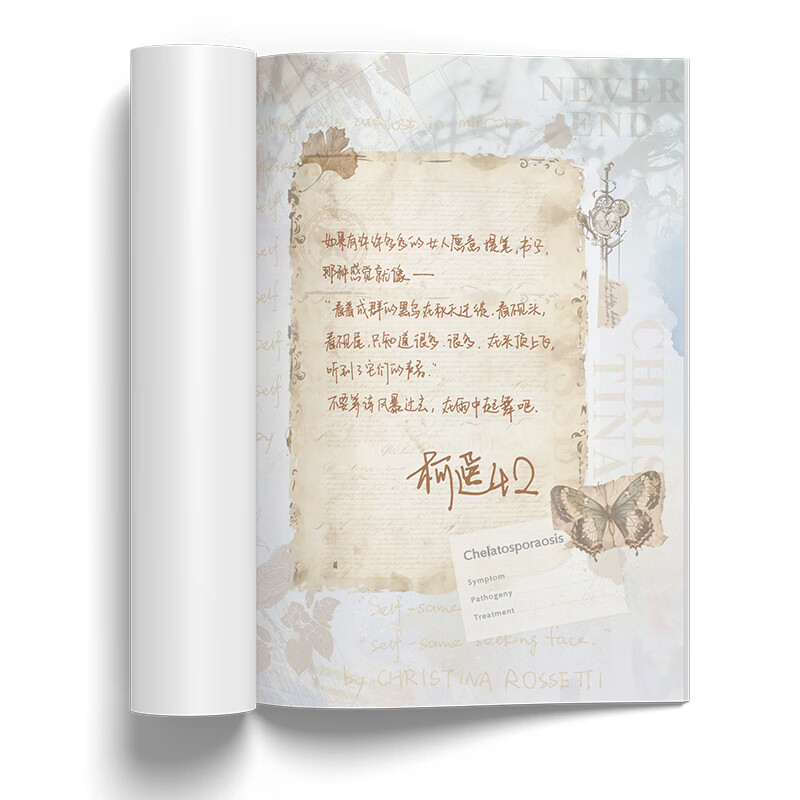 NEVER
END
如果有许许多多的女人愿意提笔,书写,
那种感觉就像——
“看着成群的黑鸟在秋天迁徙.看不见头,
看不见尾,只知道很多.很多.在头顶上飞,
听到了它们的声音.”
不要等待风暴过去,在雨中起舞吧.
柯遥42
CHRIS
TINA
Chelatosporaosis
Symptom
Pathogeny
Treatment
Self-same
"self-same seeking face."
by CHRISTINA ROSSETTI